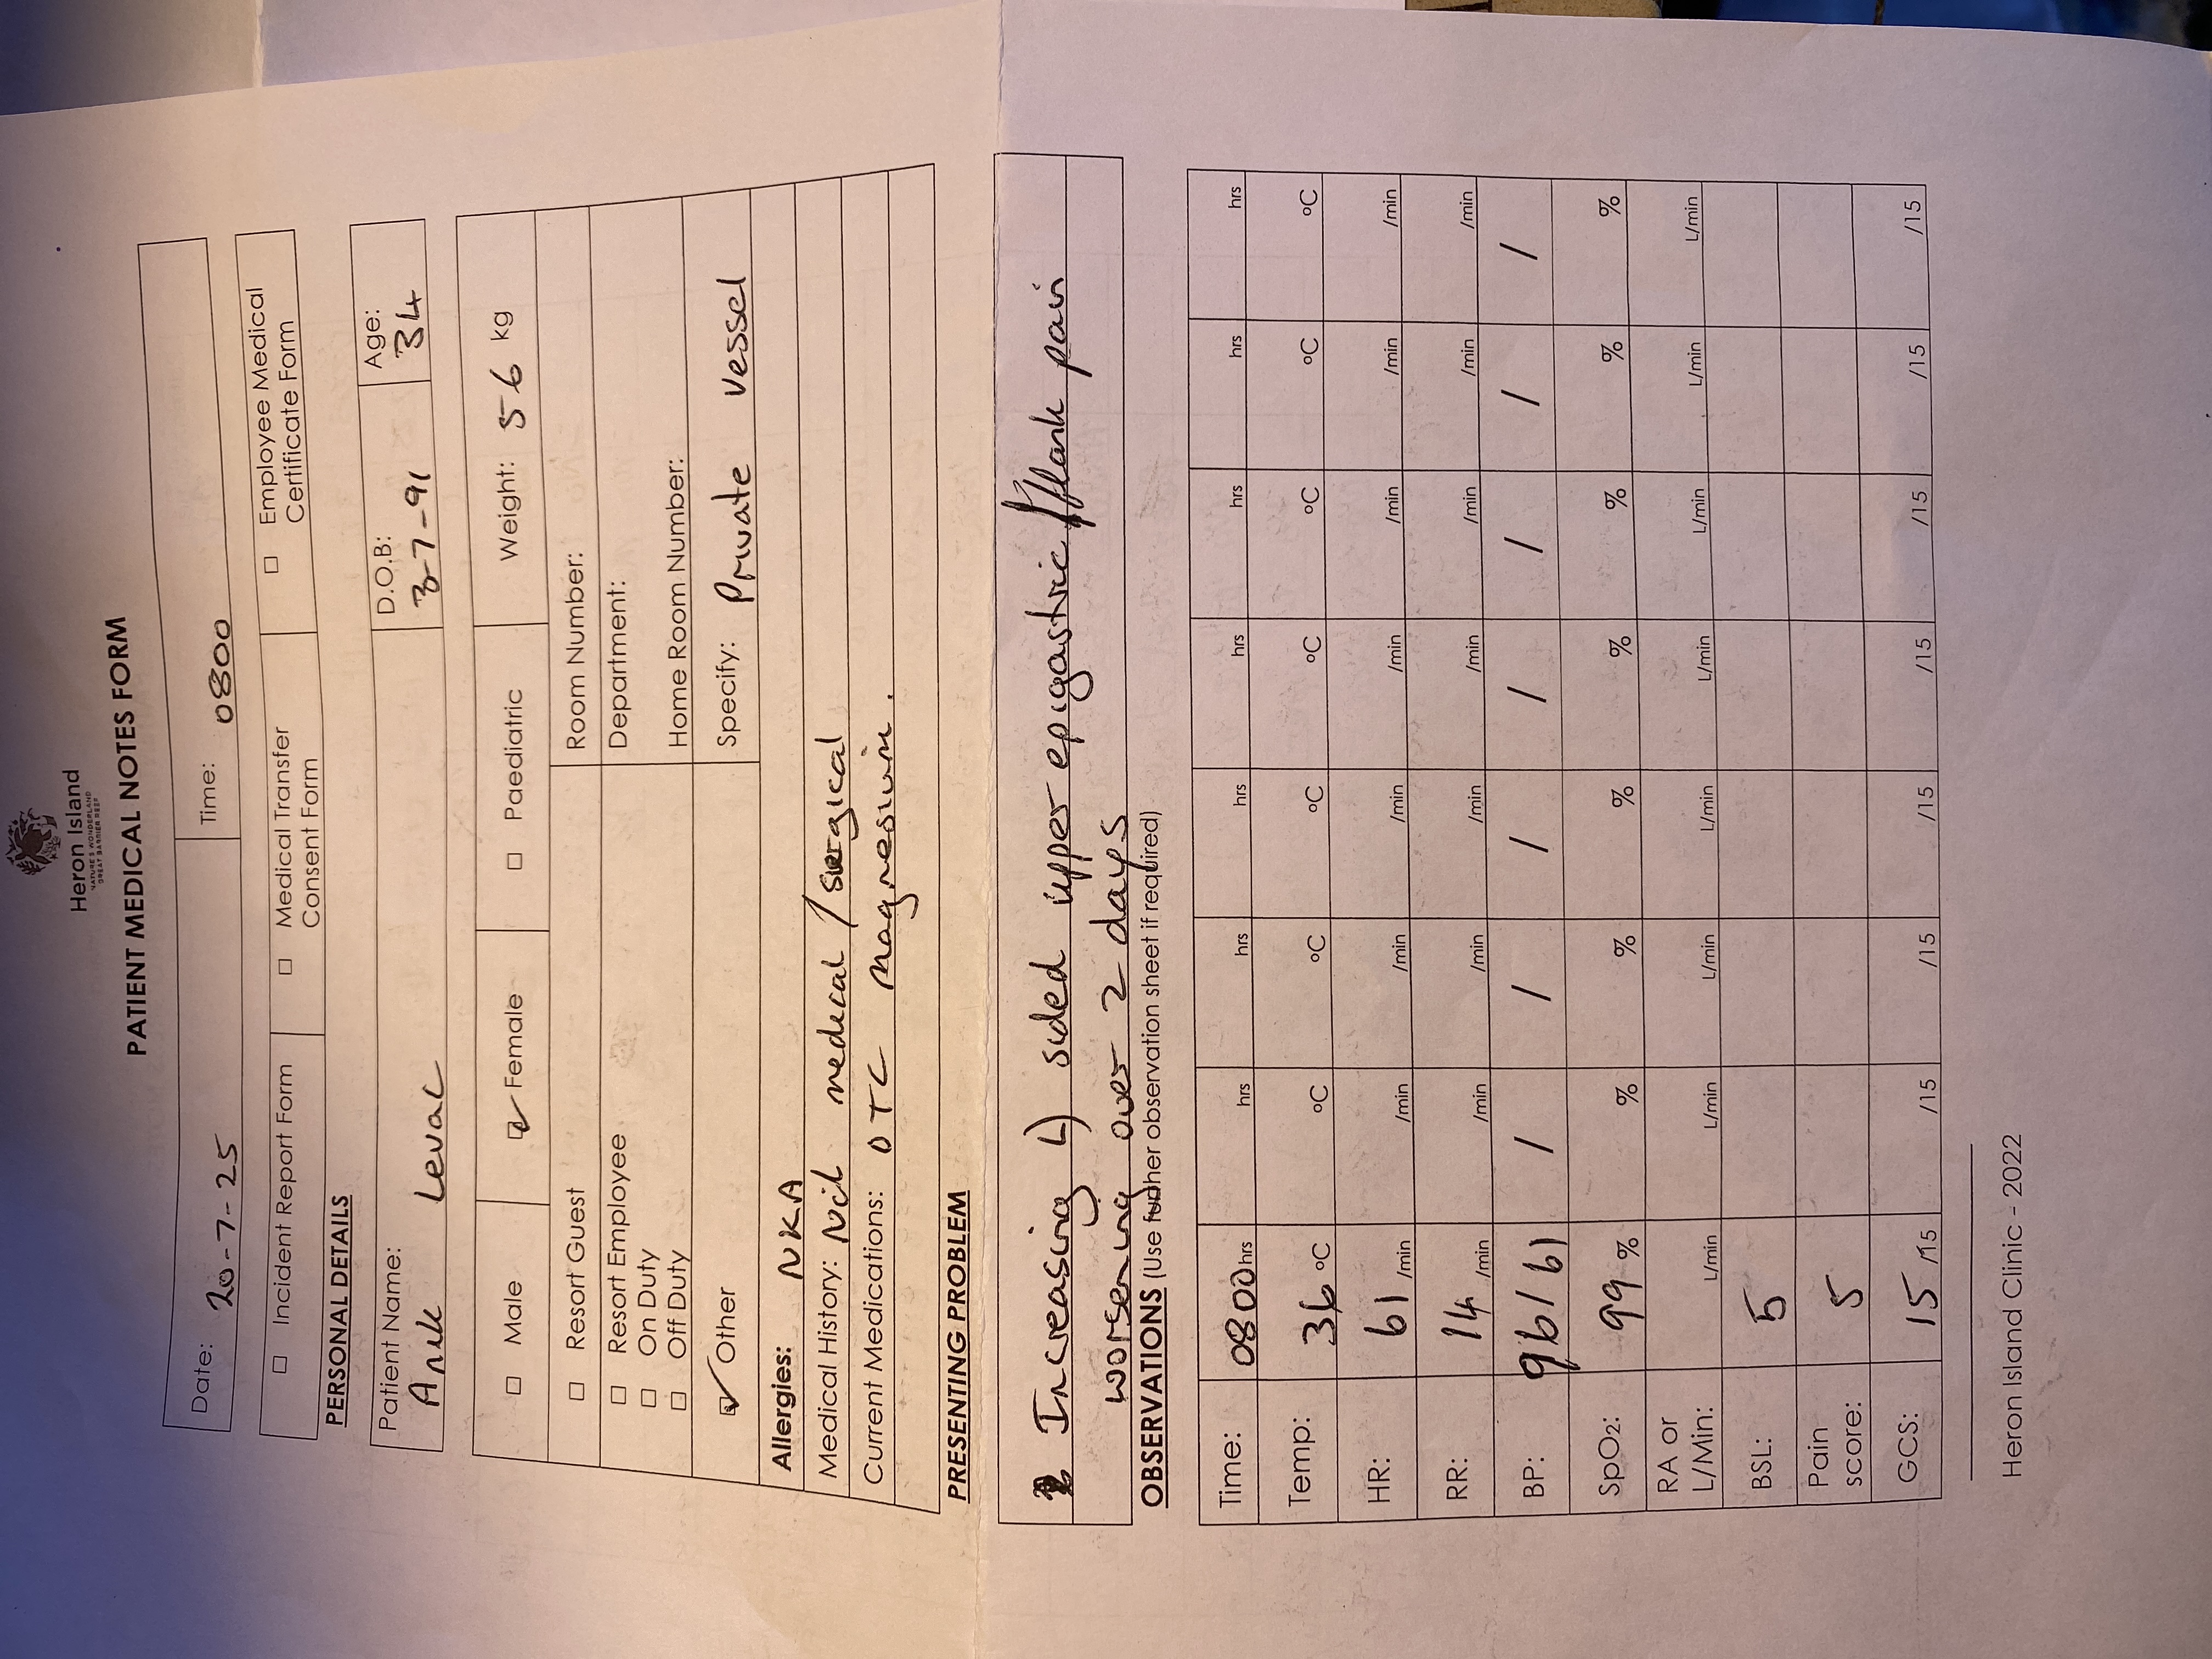 Heron Island
NATURE'S WONDERLAND
GREAT BARRIER REEF
PATIENT MEDICAL NOTES FORM
Date: 20-7-25 Time: 0800
☐ Incident Report Form ☐ Medical Transfer Consent Form ☐ Employee Medical Certificate Form
PERSONAL DETAILS
Patient Name: D.O.B: Age:
Levac 3-7-91 34
☐ Male ☑ Female ☐ Paediatric Weight: 56 kg
☐ Resort Guest Room Number:
☐ Resort Employee Department:
☐ On Duty
☐ Off Duty Home Room Number:
☑ Other Specify: Private vessel
Allergies: NKA
Medical History: Nil medical / surgical
Current Medications: OTC magnesium.
PRESENTING PROBLEM
Increasing L) sided upper epigastric / flank pain
worsening over 2 days
OBSERVATIONS (Use further observation sheet if required)
Time: 0800 hrs hrs hrs hrs hrs hrs hrs hrs
Temp: 36 °C °C °C °C °C °C °C °C
HR: 61 /min /min /min /min /min /min /min /min
RR: 14 /min /min /min /min /min /min /min /min
BP: 96/61 / / / / / / /
SpO2: 99 % % % % % % % %
RA or L/Min: L/min L/min L/min L/min L/min L/min L/min L/min
BSL: 5
Pain score: 5
GCS: 15 /15 /15 /15 /15 /15 /15 /15 /15
Heron Island Clinic - 2022